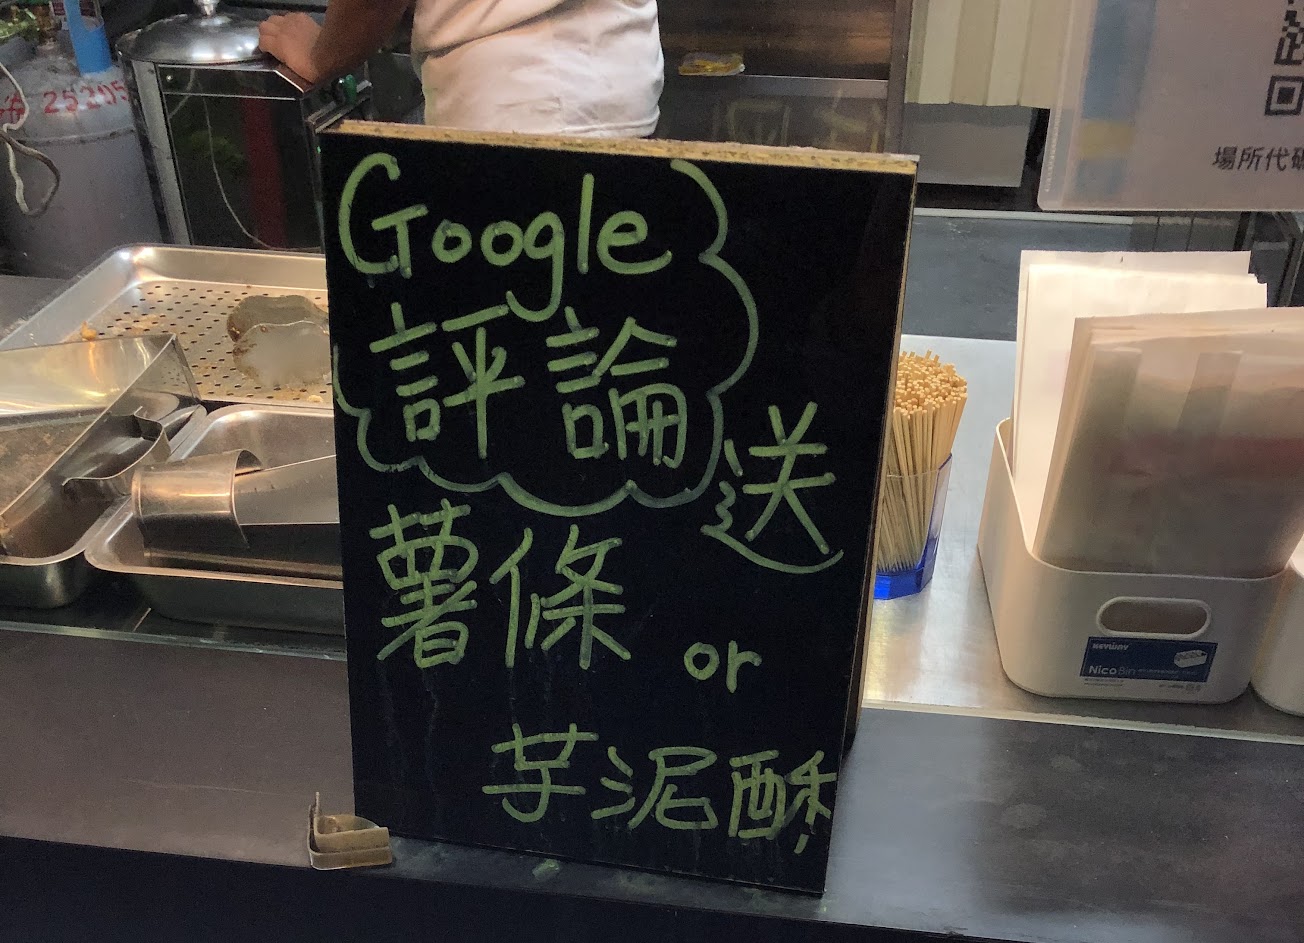 Google
評論
送
薯條
or
芋泥酥
25205
場所代碼
KEYWAY
NicoBin